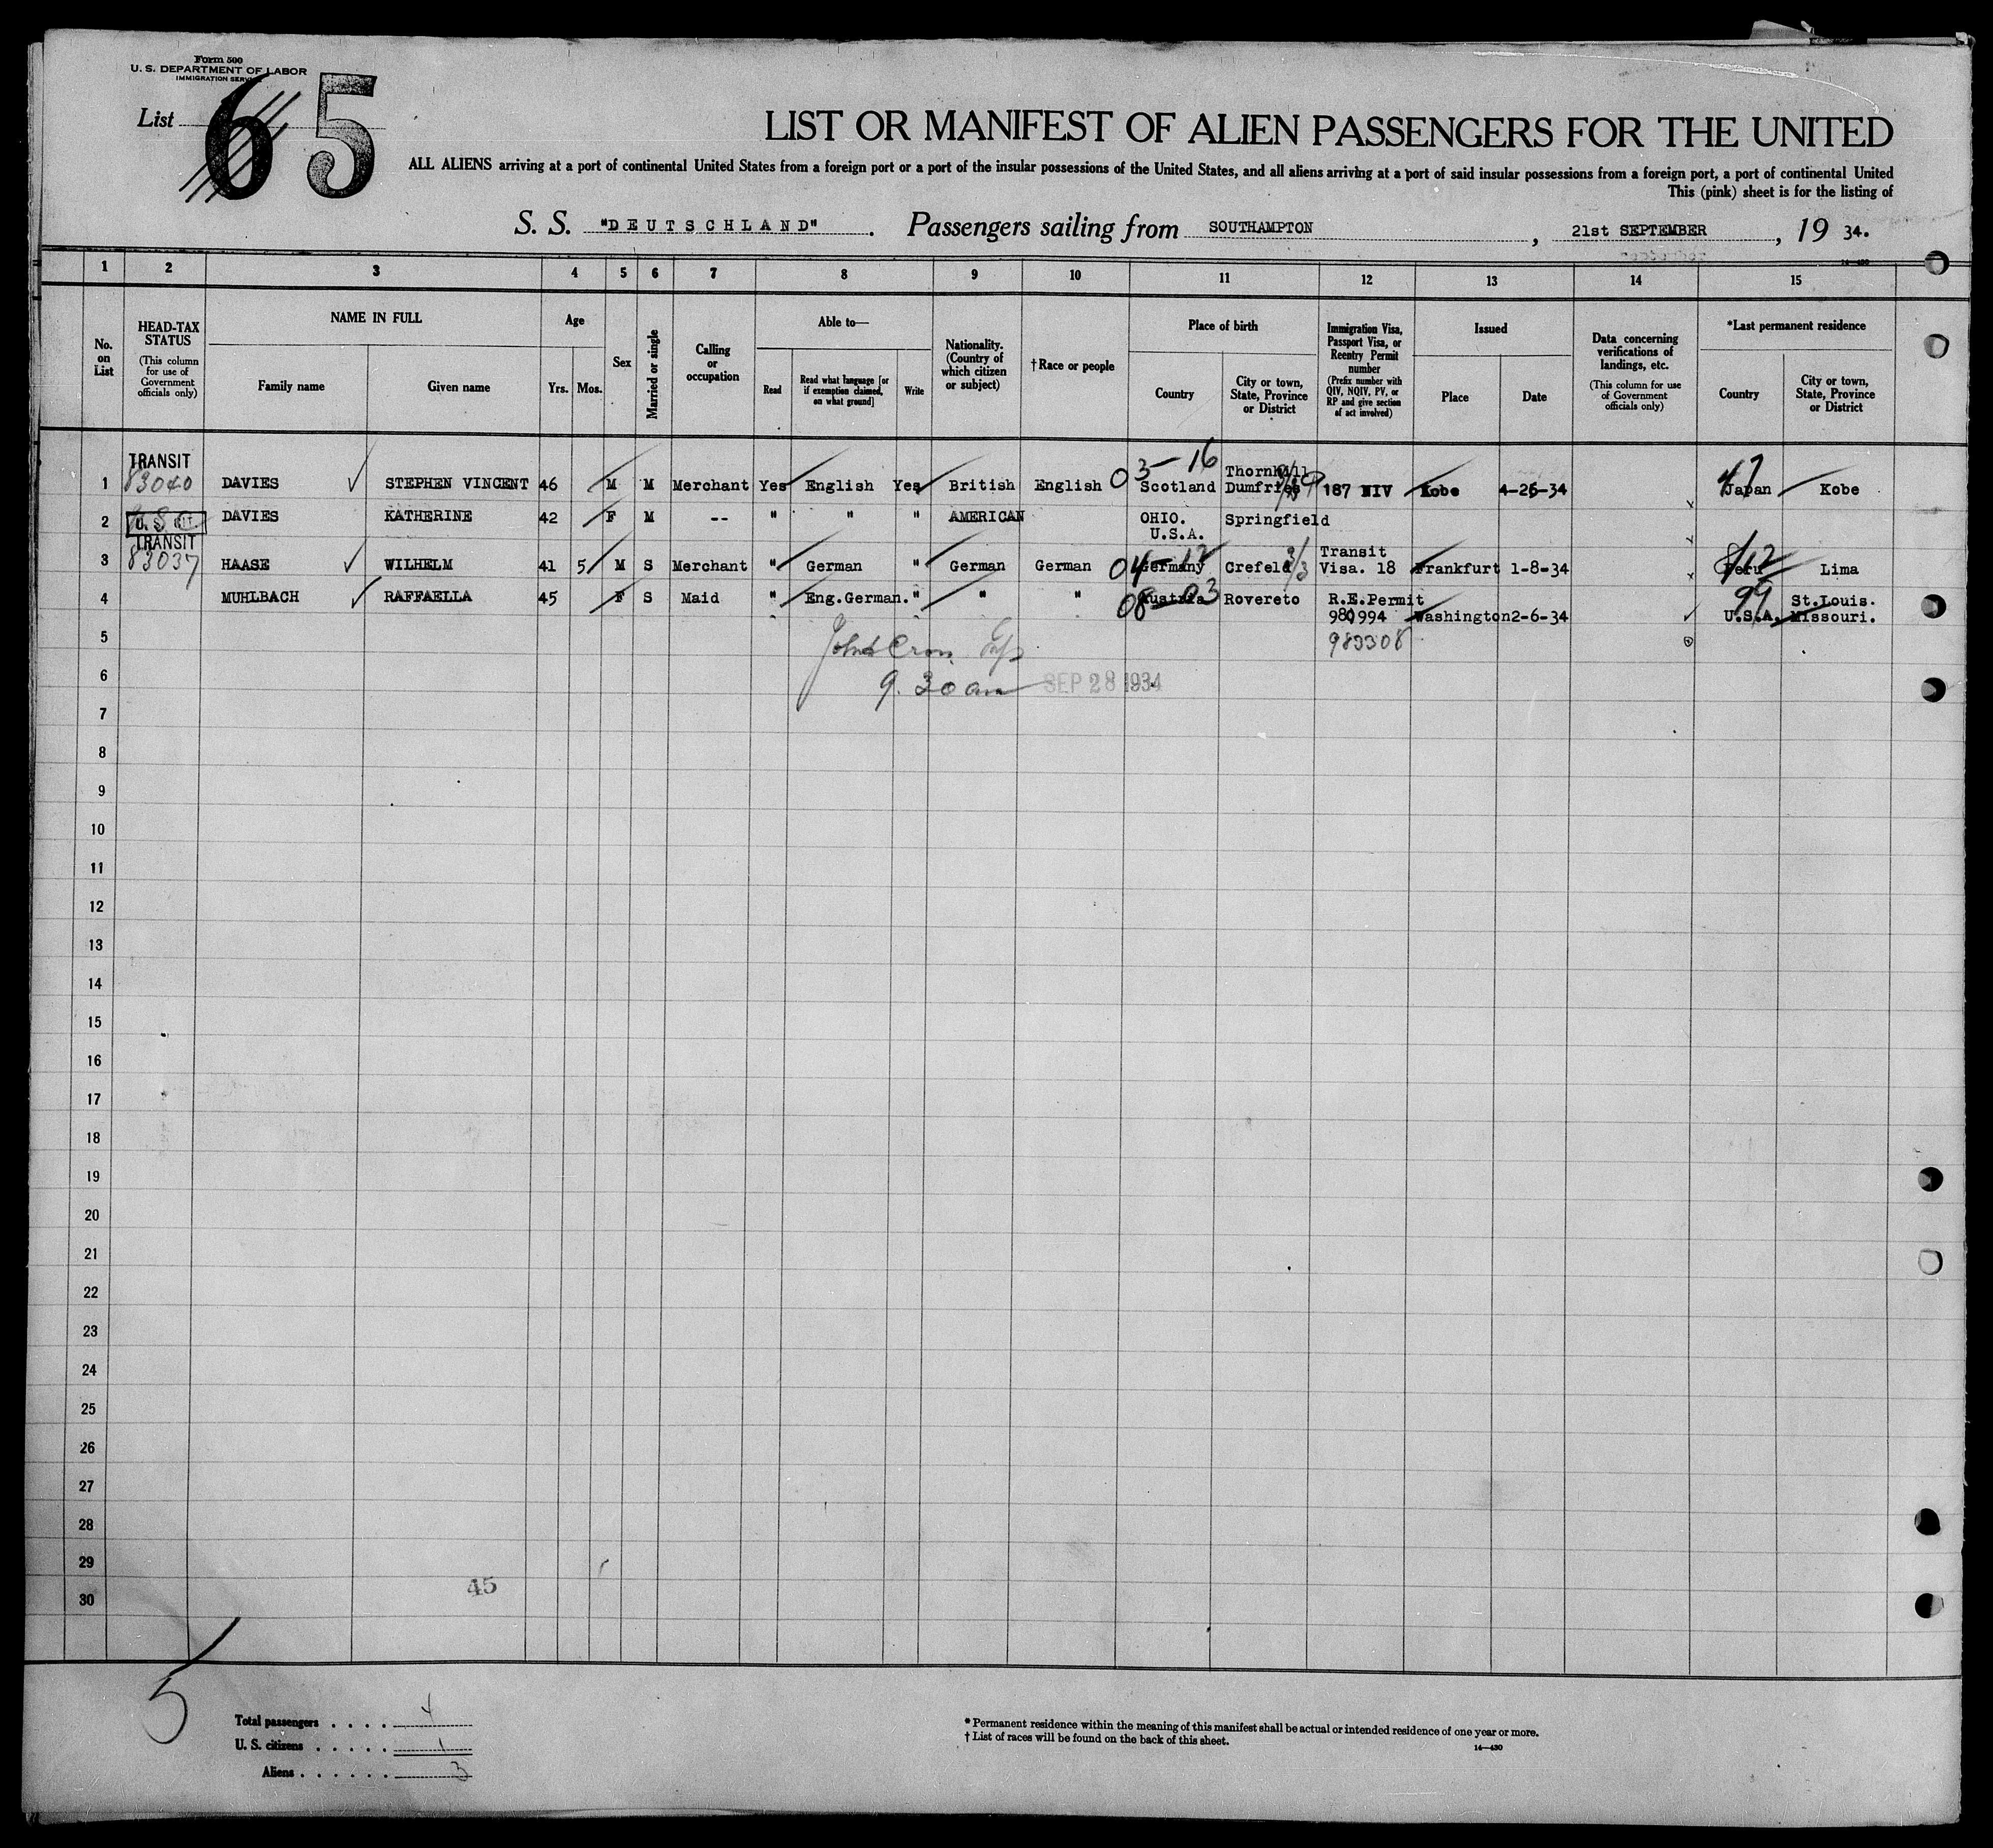 Form 500
U. S. DEPARTMENT OF LABOR
IMMIGRATION SERVICE
List 6 5
LIST OR MANIFEST OF ALIEN PASSENGERS FOR THE UNITED
ALL ALIENS arriving at a port of continental United States from a foreign port or a port of the insular possessions of the United States, and all aliens arriving at a port of said insular possessions from a foreign port, a port of continental United
This (pink) sheet is for the listing of
S. S. "DEUTSCHLAND". Passengers sailing from SOUTHAMPTON, 21st SEPTEMBER, 19 34.
1 2 3 4 5 6 7 8 9 10 11 12 13 14 15
No. on List
HEAD-TAX STATUS (This column for use of Government officials only)
NAME IN FULL
Family name Given name
Age
Yrs. Mos.
Sex
Married or single
Calling or occupation
Able to—
Read Read what language [or if exemption claimed, on what ground] Write
Nationality. (Country of which citizen or subject)
†Race or people
Place of birth
Country City or town, State, Province or District
Immigration Visa, Passport Visa, or Reentry Permit number (Prefix number with QIV, NQIV, PV, or RP and give section of act involved)
Issued
Place Date
Data concerning verifications of landings, etc. (This column for use of Government officials only)
*Last permanent residence
Country City or town, State, Province or District
TRANSIT 03-16 Thornhill 47
1 83040 DAVIES STEPHEN VINCENT 46 M M Merchant Yes English Yes British English Scotland Dumfries 187 NIV Kobe 4-26-34 Japan Kobe
2 DAVIES KATHERINE 42 F M -- " " " AMERICAN OHIO. U.S.A. Springfield
TRANSIT
3 83037 HAASE WILHELM 41 5 M S Merchant " German " German German 04-12 Germany Crefeld 3/3 Transit Visa. 18 Frankfurt 1-8-34 812 Peru Lima
4 MUHLBACH RAFFAELLA 45 F S Maid " Eng.German. " " " 08-03 Austria Rovereto R.E.Permit 980994 Washington 2-6-34 99 U.S.A. St.Louis. Missouri.
5 983308
6 9.30 am SEP 28 1934
7
8
9
10
11
12
13
14
15
16
17
18
19
20
21
22
23
24
25
26
27
28
29
30
45
5
Total passengers . . . . 4
U. S. citizens . . . . . 1
Aliens . . . . . . 3
* Permanent residence within the meaning of this manifest shall be actual or intended residence of one year or more.
† List of races will be found on the back of this sheet.
14—430